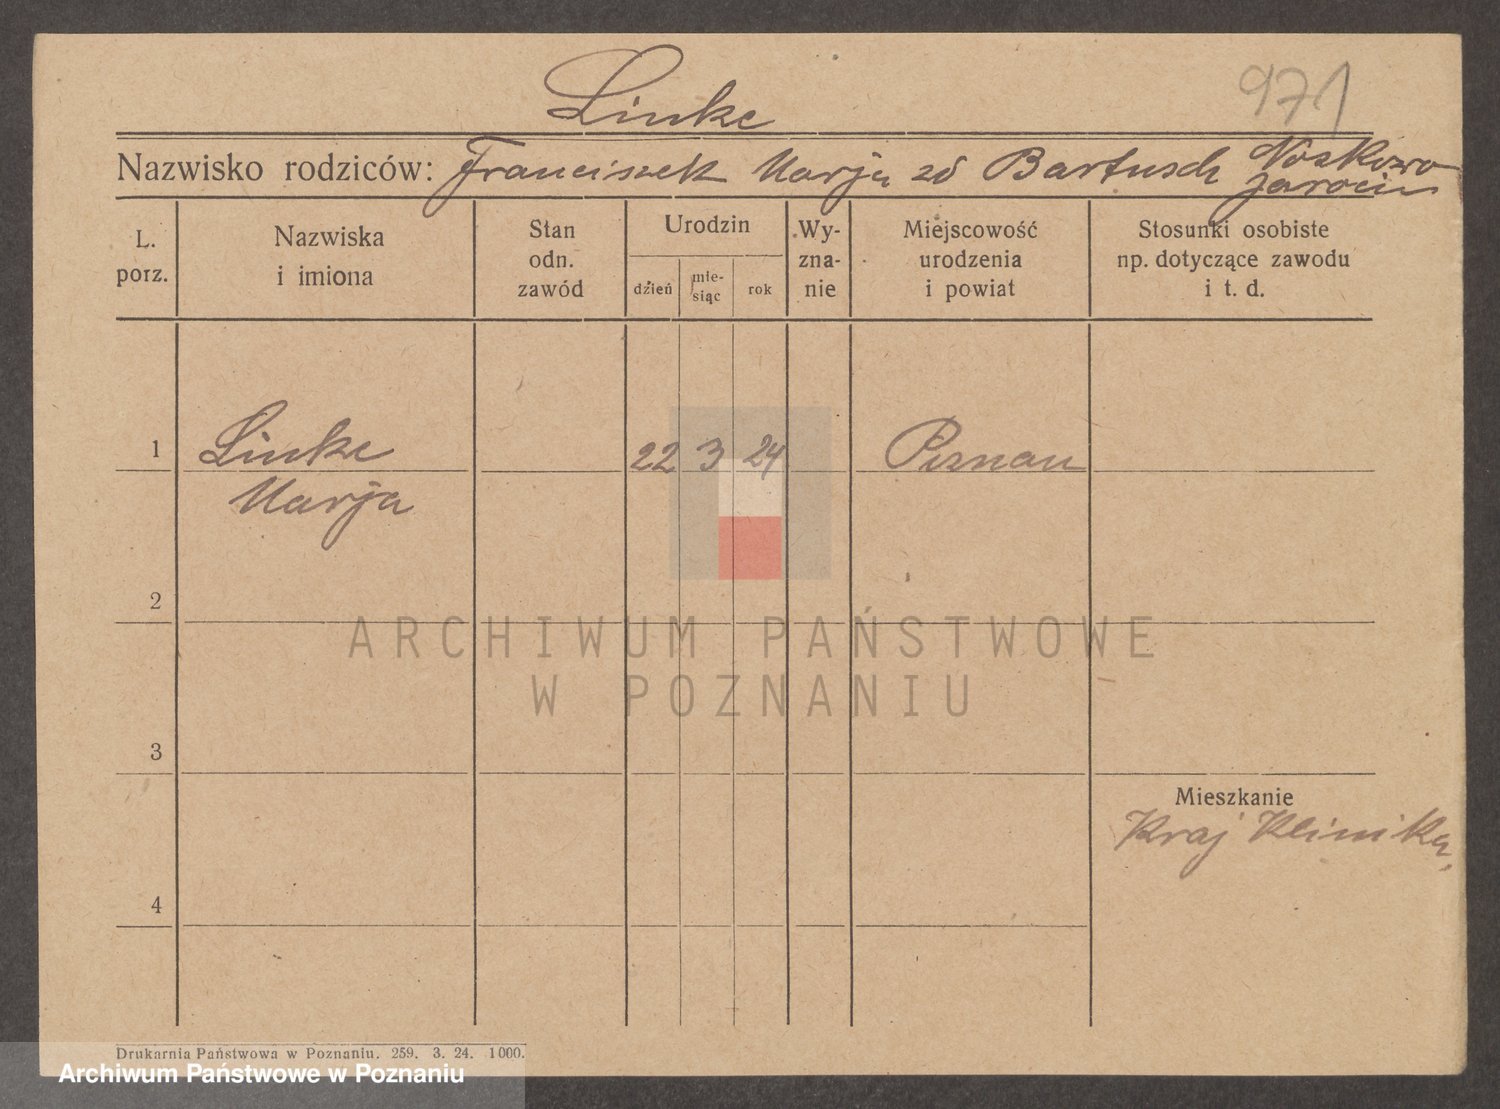 971
Linke
Nazwisko rodziców: Franciszek Marja zd Bartusch Noskowo
Jarocin
L. porz.
Nazwiska i imiona
Stan odn. zawód
Urodzin
dzień
mie-siąc
rok
Wy-zna-nie
Miejscowość urodzenia i powiat
Stosunki osobiste np. dotyczące zawodu i t. d.
1 Linke 22 3 24 Poznan
Marja
2
ARCHIWUM PAŃSTWOWE
W POZNANIU
3
Mieszkanie
Kraj Klinika,
4
Drukarnia Państwowa w Poznaniu. 259. 3. 24. 1000.
Archiwum Państwowe w Poznaniu